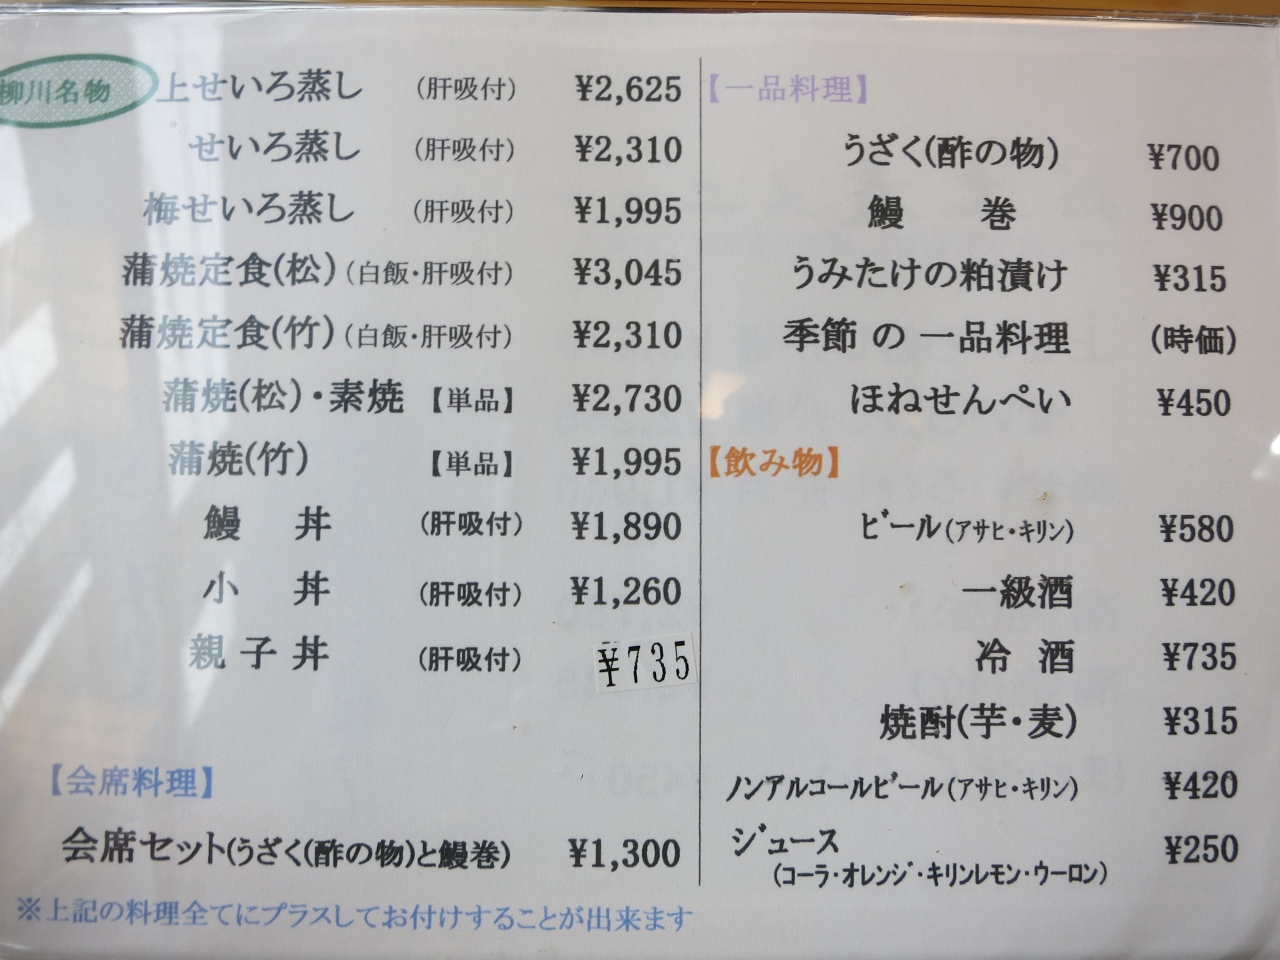 柳川名物
上せいろ蒸し (肝吸付) ¥2,625
せいろ蒸し (肝吸付) ¥2,310
梅せいろ蒸し (肝吸付) ¥1,995
蒲焼定食(松) (白飯・肝吸付) ¥3,045
蒲焼定食(竹) (白飯・肝吸付) ¥2,310
蒲焼(松)・素焼 【単品】 ¥2,730
蒲焼(竹) 【単品】 ¥1,995
鰻 丼 (肝吸付) ¥1,890
小 丼 (肝吸付) ¥1,260
親子丼 (肝吸付) ¥735
【会席料理】
会席セット(うざく(酢の物)と鰻巻) ¥1,300
※上記の料理全てにプラスしてお付けすることが出来ます
【一品料理】
うざく(酢の物) ¥700
鰻 巻 ¥900
うみたけの粕漬け ¥315
季節の一品料理 (時価)
ほねせんぺい ¥450
【飲み物】
ビール(アサヒ・キリン) ¥580
一級酒 ¥420
冷 酒 ¥735
焼酎(芋・麦) ¥315
ノンアルコールビール(アサヒ・キリン) ¥420
ジュース ¥250
(コーラ・オレンジ・キリンレモン・ウーロン)